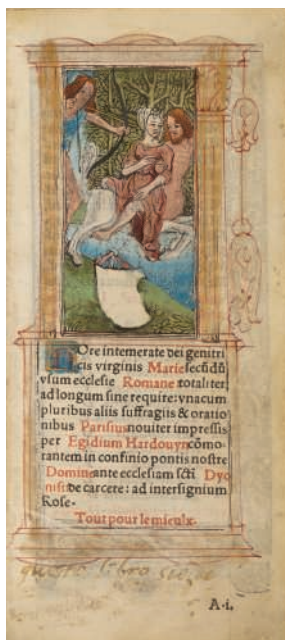 Hore intemerate dei genitri
cis virginis Marie secūdū
vsum ecclesie Romane totaliter
ad longum sine require: vnacum
pluribus aliis suffragiis & oratio
nibus Parisius nouiter impressis
per Egidium Hardouyn cōmo-
rantem in confinio pontis nostre
Domine ante ecclesiam sctī Dyo
nisii de carcere: ad intersignium
Rose.
Tout pour le mieulx.
questo libro
A.i.